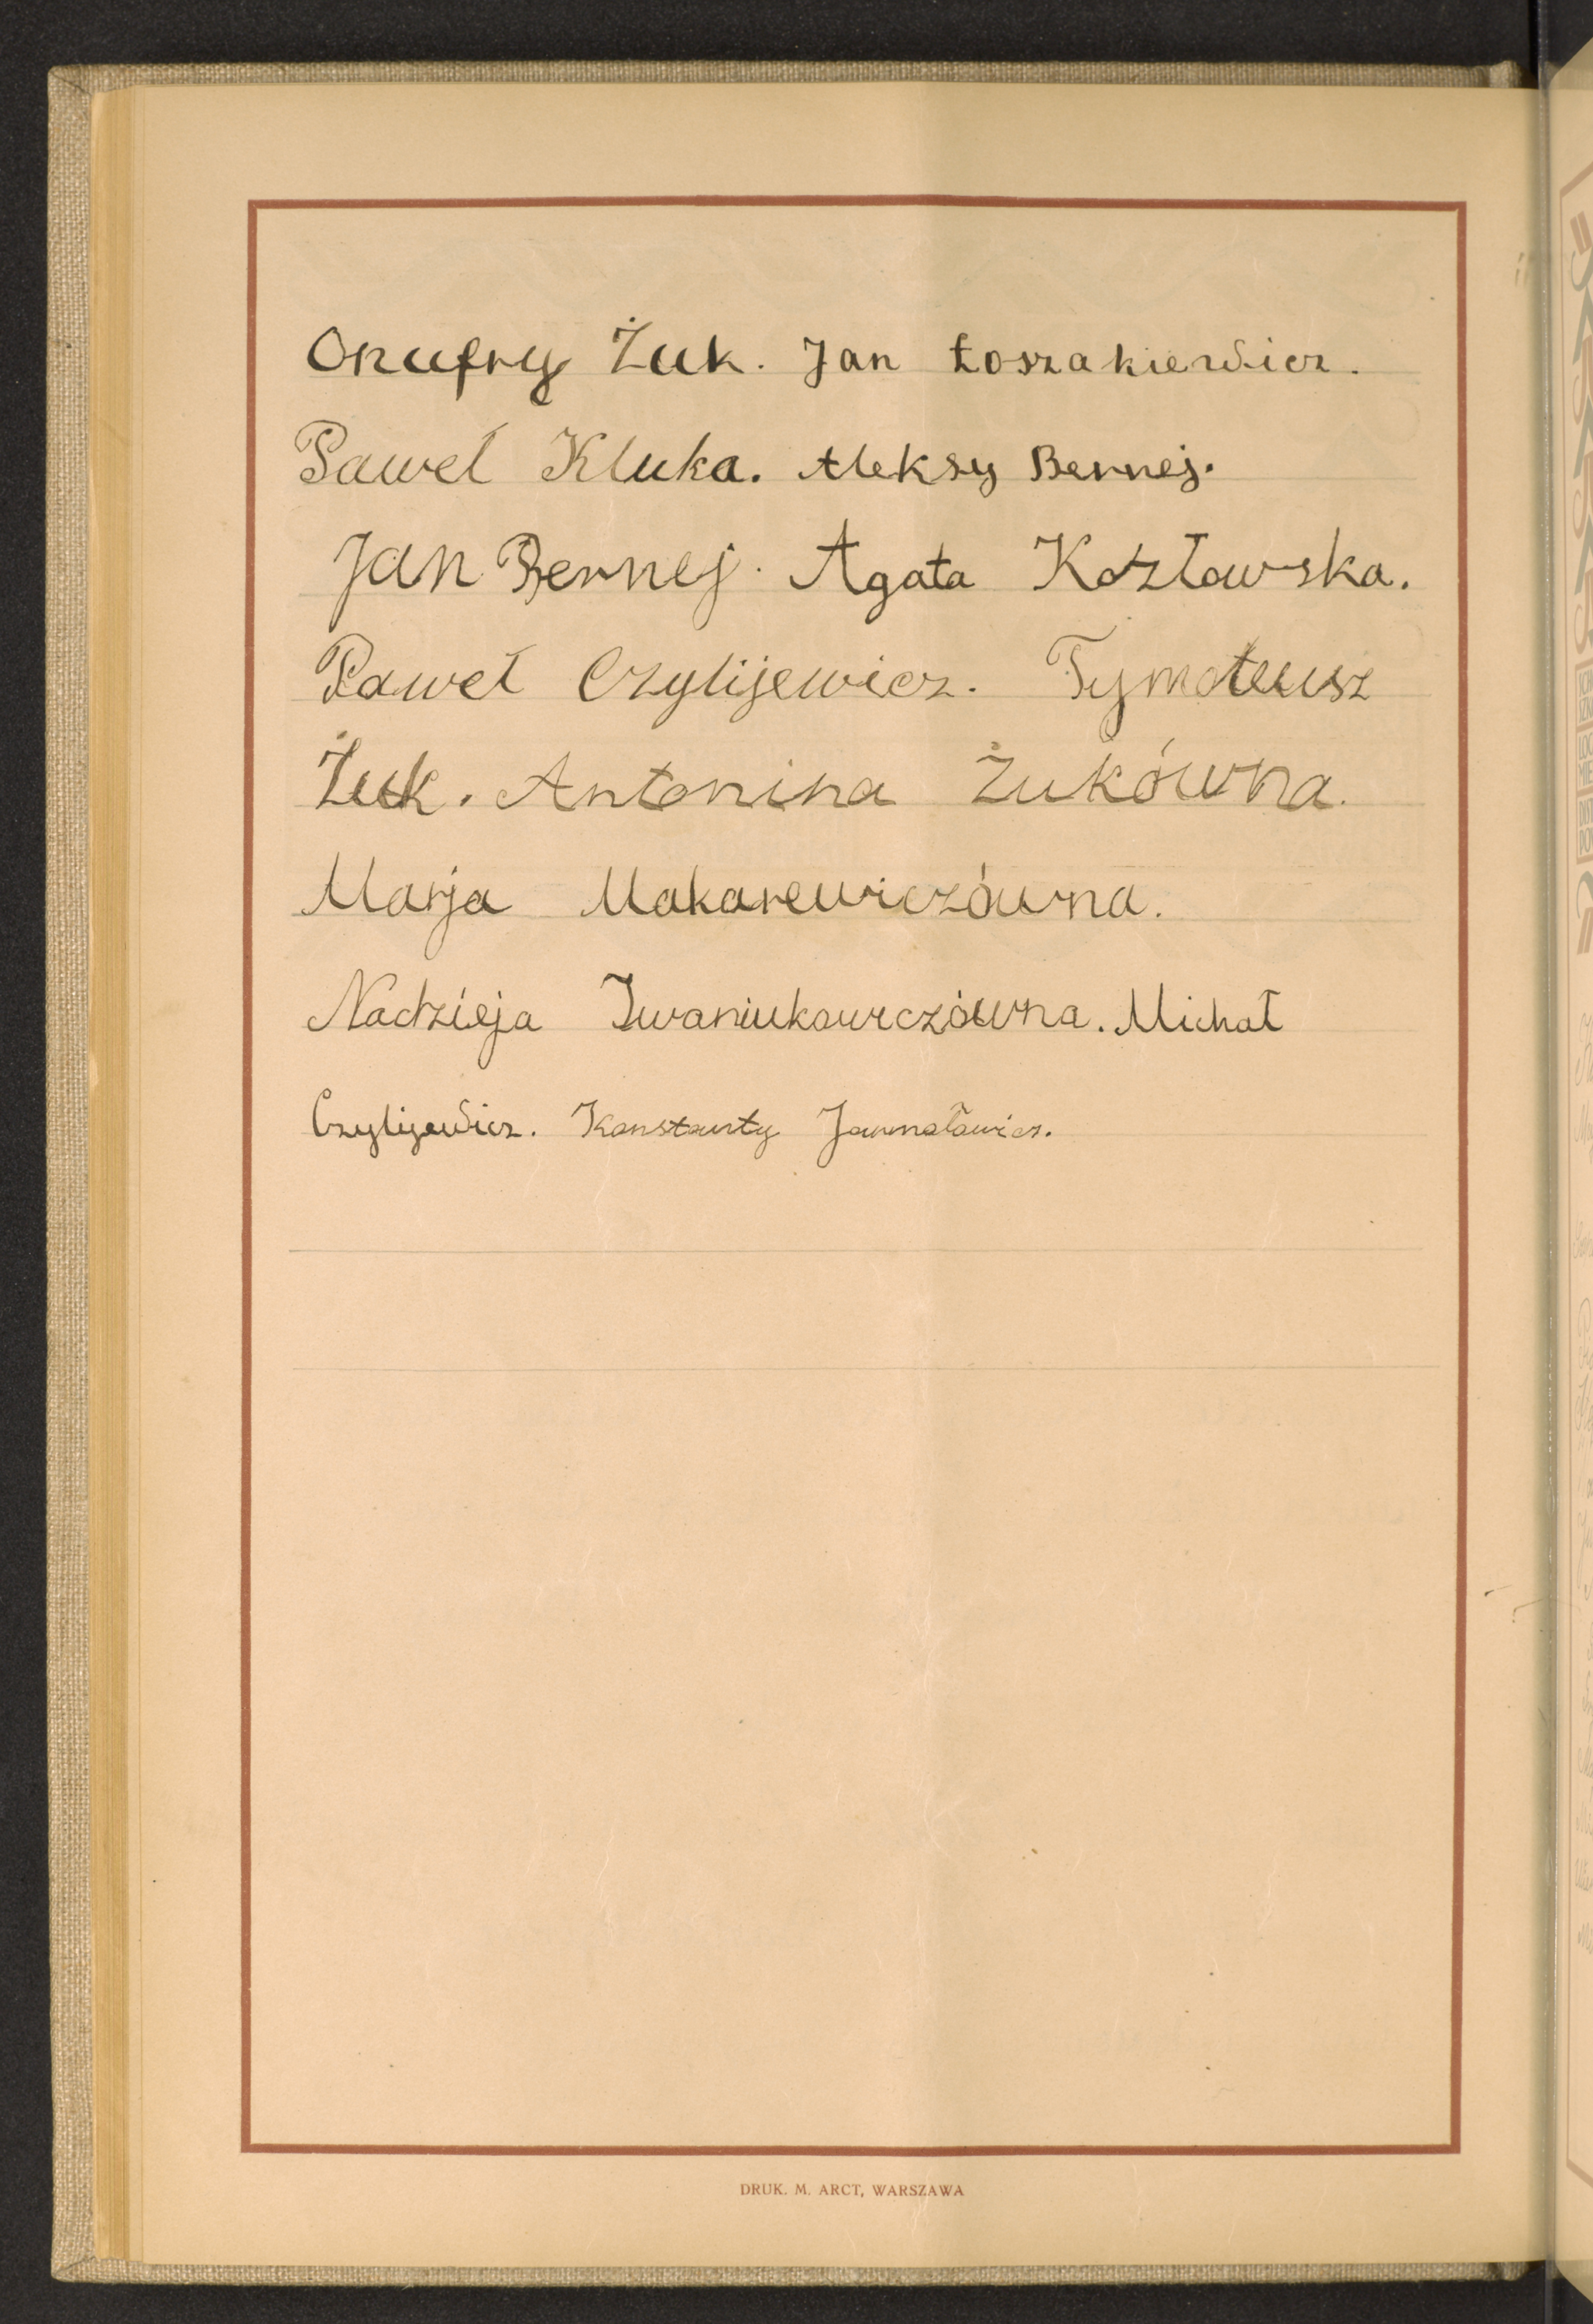 Onufry Żuk. Jan Łoszakiewicz.
Paweł Kluka. Aleksy Bernej.
Jan Bernej. Agata Kozłowska.
Paweł Czylijewicz. Tymoteusz
Żuk. Antonina Żukówna.
Marja Makarewiczówna.
Nadzieja Iwaniukowiczówna. Michał
Czylijewicz. Konstanty Jarmołowicz.
DRUK. M. ARCT, WARSZAWA